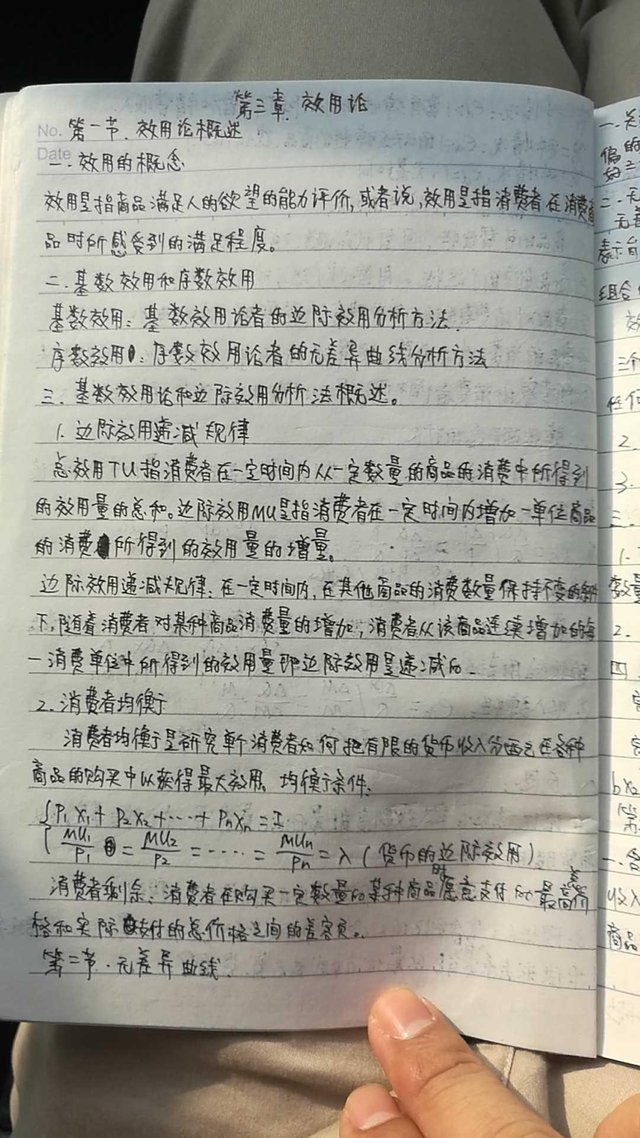 第三章. 效用论
No. 第一节. 效用论概述
Date
一. 效用的概念
效用是指商品满足人的欲望的能力评价, 或者说, 效用是指消费者在消费商
品时所感受到的满足程度。
二. 基数效用和序数效用
基数效用: 基数效用论者的边际效用分析方法.
序数效用: 序数效用论者的无差异曲线分析方法
三. 基数效用论和边际效用分析法概述。
1. 边际效用递减规律
总效用TU指消费者在一定时间内从一定数量的商品的消费中所得到
的效用量的总和。边际效用MU是指消费者在一定时间内增加一单位商品
的消费所得到的效用量的增量。
边际效用递减规律: 在一定时间内, 在其他商品的消费数量保持不变的条件
下, 随着消费者对某种商品消费量的增加, 消费者从该商品连续增加的每
一消费单位中所得到的效用量即边际效用是递减的.
2. 消费者均衡
消费者均衡是研究单个消费者如何把有限的货币收入分配在各种
商品的购买中以获得最大效用. 均衡条件:
P₁X₁ + P₂X₂ + …… + PnXn = I
MU₁/P₁ = MU₂/P₂ = …… = MUn/Pn = λ (货币的边际效用)
消费者剩余: 消费者在购买一定数量的某种商品时愿意支付的最高总价
格和实际支付的总价格之间的差额.
第二节. 无差异曲线.
一. 关
偏的
的三
二. 无
无差
表示能
组合
效
三个
任何
2.
3.
三.
1.
数量
2.
四.
第
一. 含
收入
商品